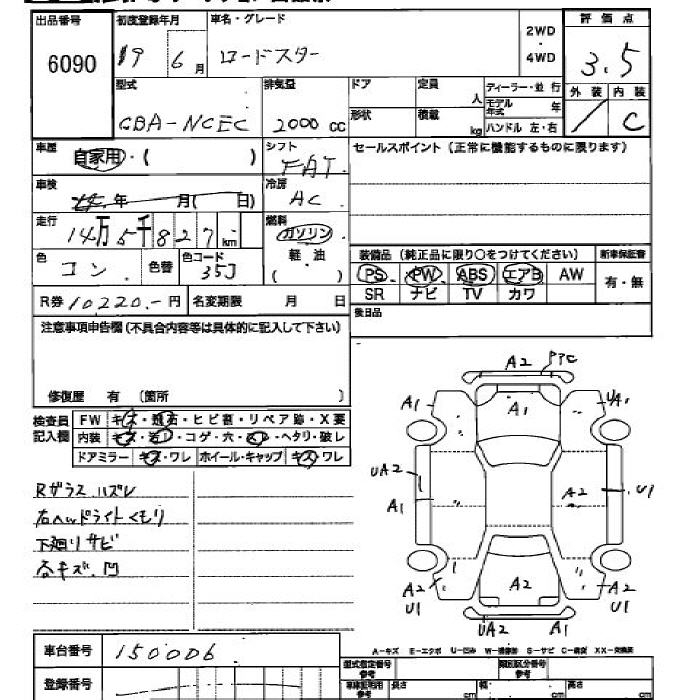 出品番号 初度登録年月 車名・グレード 2WD・4WD 評価点
6090 19 6月 ロードスター 3.5
外装 内装
/ C
型式 排気量 ドア 定員 人 ディーラー・並行
CBA-NCEC 2000cc 形状 積載 kg モデル年式 年
ハンドル 左・右
車歴 自家用・( ) シフト FAT セールスポイント(正常に機能するものに限ります)
車検 年 月( 日) 冷房 AC
走行 14万5千827km 燃料 ガソリン 軽油 ( )
色 コン 色替 色コード 35J
装備品(純正品に限り○をつけてください) 新車保証書
PS PW ABS エアB AW 有・無
SR ナビ TV カワ
R券 10,220.-円 名変期限 月 日 後日品
注意事項申告欄(不具合内容等は具体的に記入して下さい)
修復歴 有 (箇所 )
検査員記入欄 FW キズ・飛石・ヒビ割・リペア跡・X要
内装 キズ・汚レ・コゲ・穴・スレ・ヘタリ・破レ
ドアミラー キズ・ワレ ホイール・キャップ キズ・ワレ
Rガラスハズレ
右ヘッドライトくもり
下廻りサビ
各キズ.凹
A2 PTC
A1 A1 UA1
UA2
A1 A2 U1
A2 U1 A2 A2 U1
UA2 A1
A-キズ E-エクボ U-凹み W-補修跡 S-サビ C-腐食 XX-交換済
車台番号 150006
型式指定番号 参考 類別区分番号 参考
登録番号 長さ cm 幅 cm 高さ cm